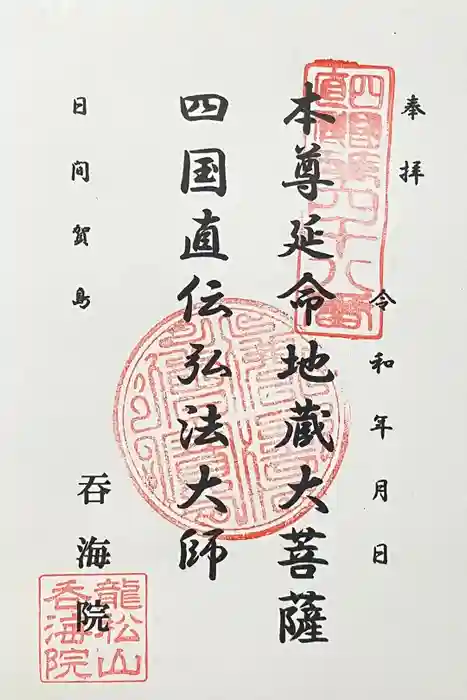 奉拝
令和年月日
本尊延命地蔵大菩薩
四国直伝弘法大師
日間賀島
呑海院
龍松山
呑海院